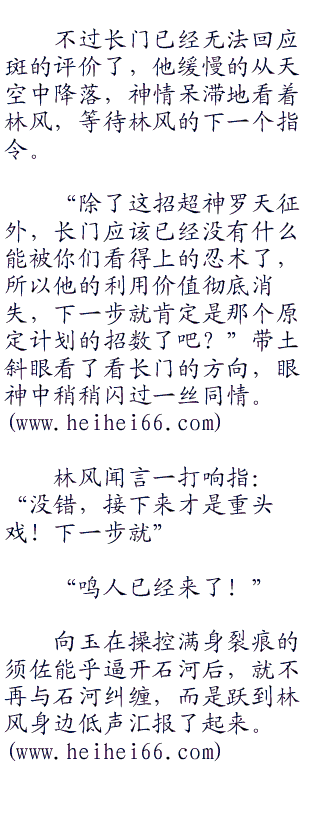 不过长门已经无法回应
斑的评价了，他缓慢的从天
空中降落，神情呆滞地看着
林风，等待林风的下一个指
令。
“除了这招超神罗天征
外，长门应该已经没有什么
能被你们看得上的忍术了，
所以他的利用价值彻底消
失，下一步就肯定是那个原
定计划的招数了吧？”带土
斜眼看了看长门的方向，眼
神中稍稍闪过一丝同情。
(www.heihei66.com)
林风闻言一打响指：
“没错，接下来才是重头
戏！下一步就”
“鸣人已经来了！”
向玉在操控满身裂痕的
须佐能乎逼开石河后，就不
再与石河纠缠，而是跃到林
风身边低声汇报了起来。
(www.heihei66.com)